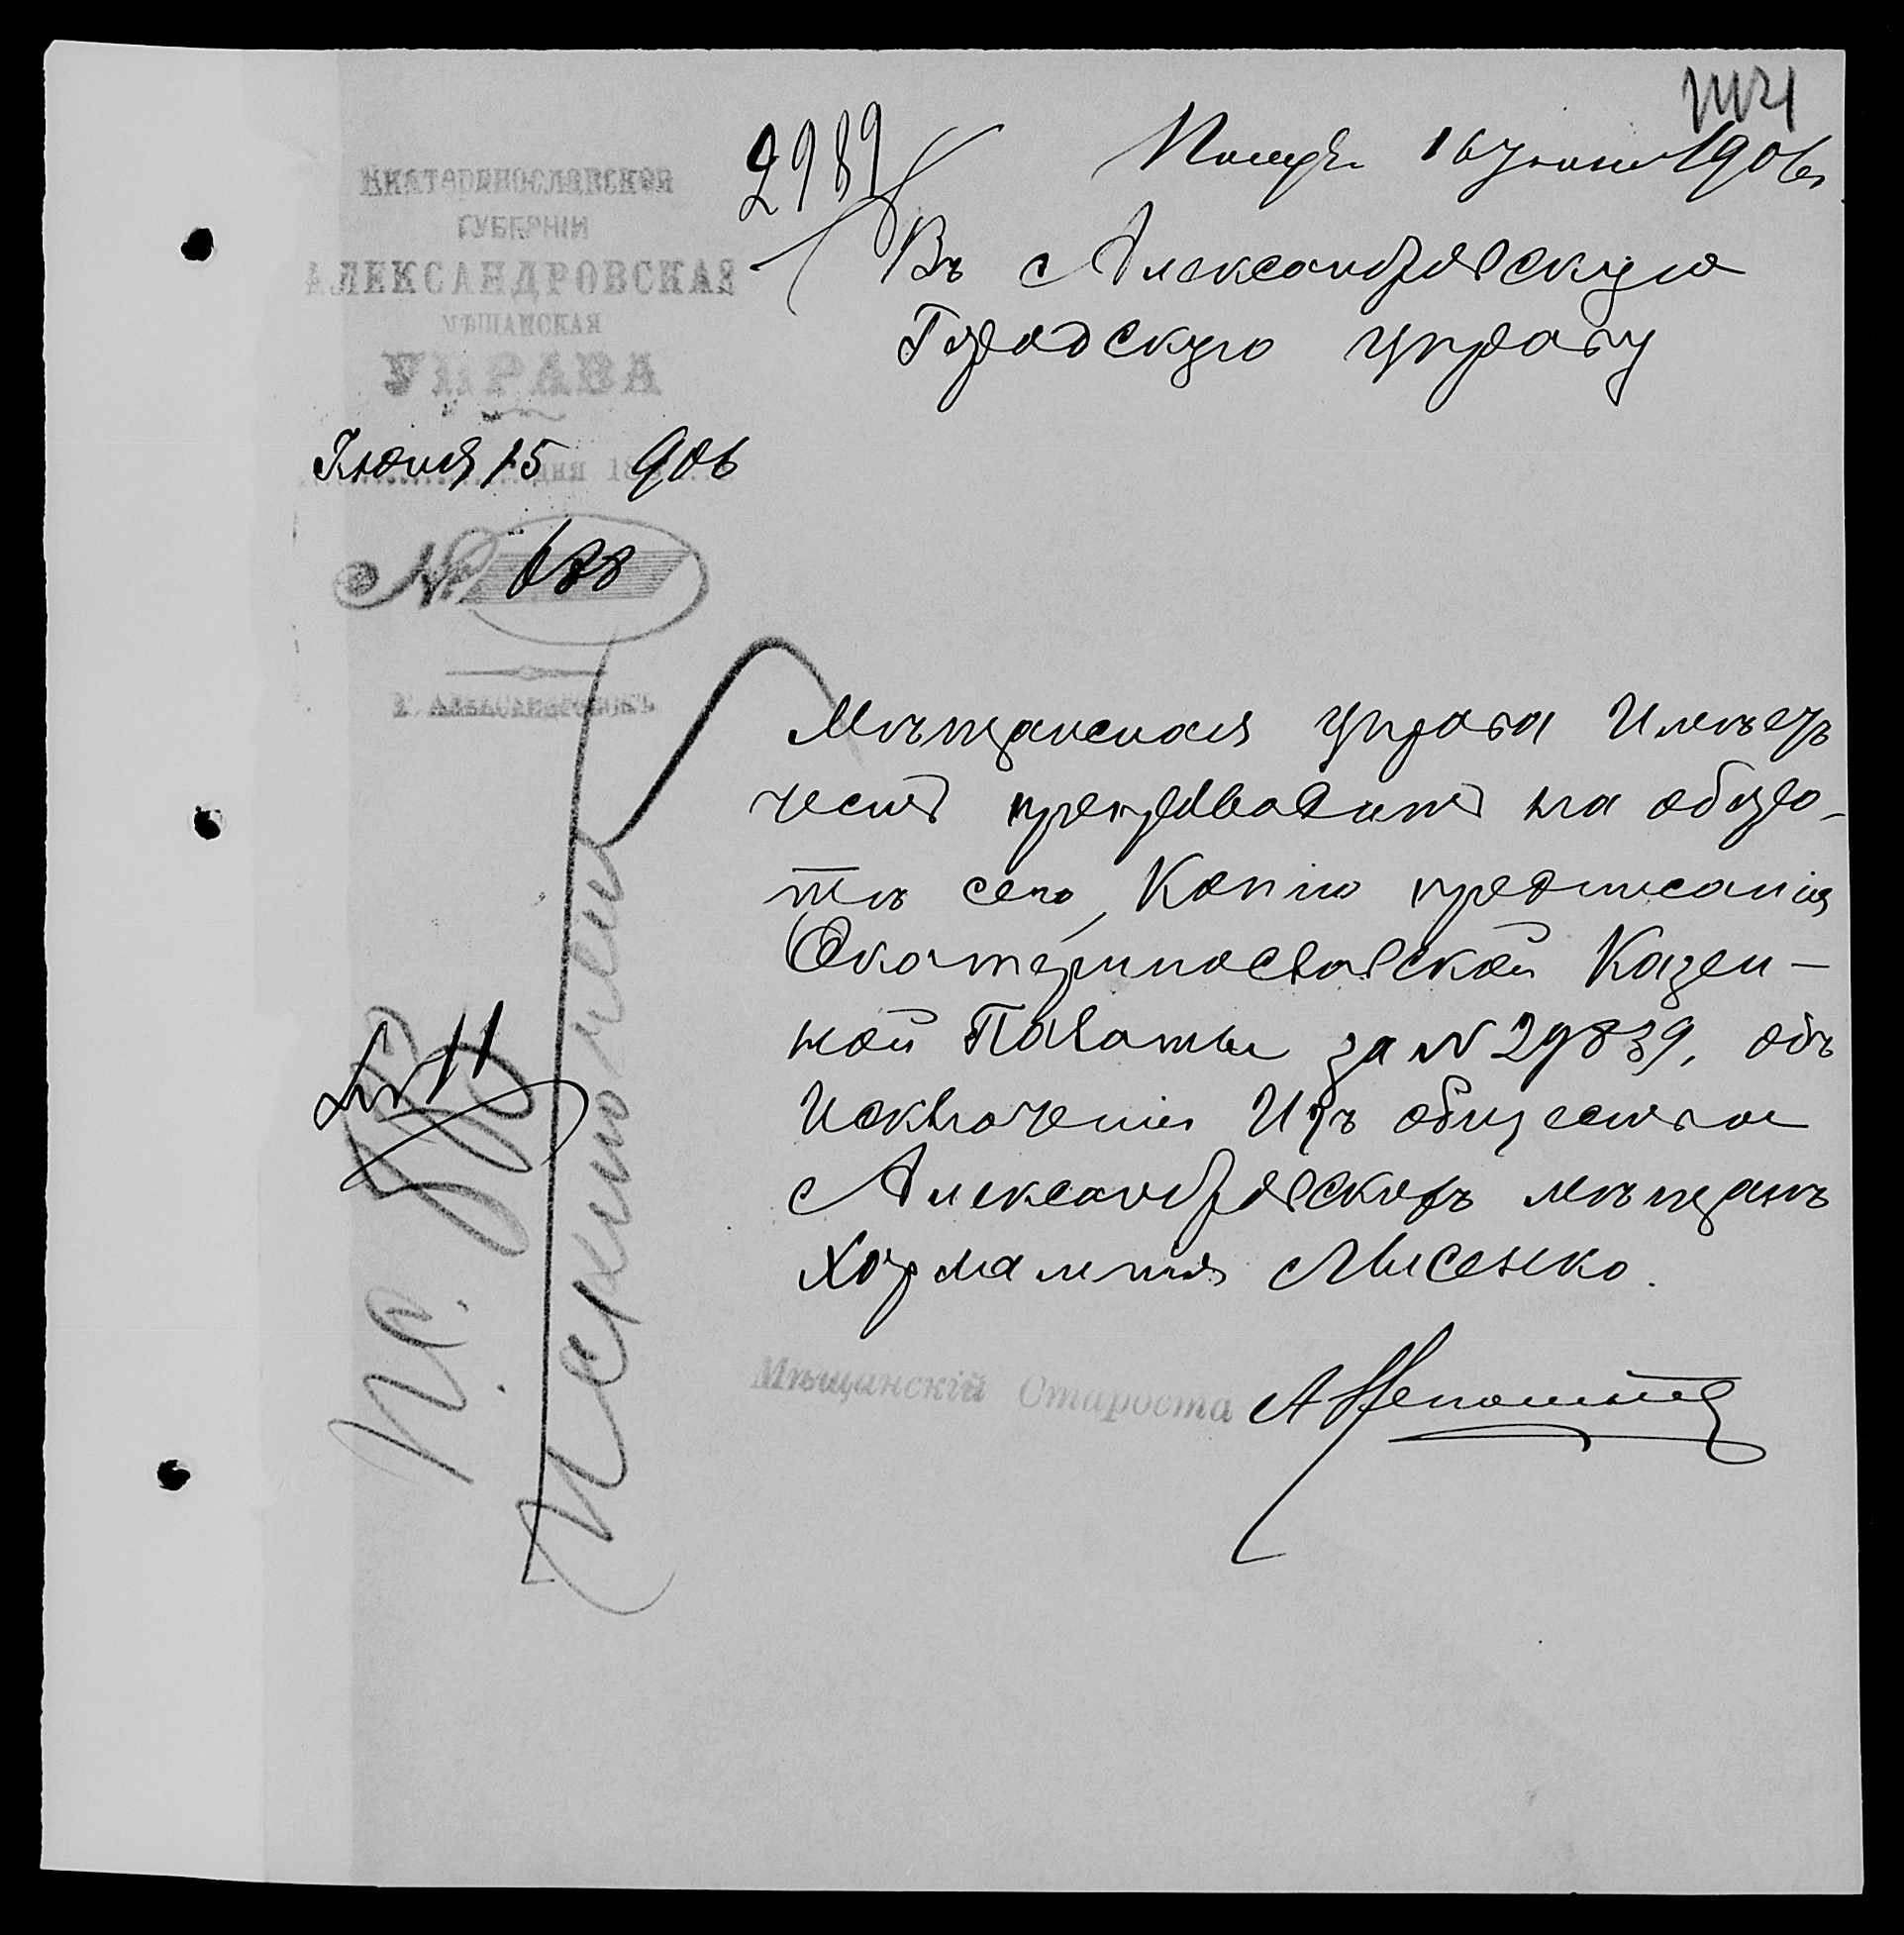 2989
16 Іюня 1906 г.
Екатеринославской
губерніи
АЛЕКСАНДРОВСКАЯ
МѢЩАНСКАЯ
УПРАВА
Іюня 15 дня 1906
№ 688
Г. Александровскъ
Въ Александровскую
Городскую управу
Мѣщанская управа Имѣетъ
честь препроводить на оборо-
тѣ сего, Копію предписанія
Екатеринославской Казен-
ной Палаты за № 29839, объ
Исключеніи Изъ общества
Александровскихъ мѣщанъ
Лисенко.
Мѣщанскій Староста
Исключенія